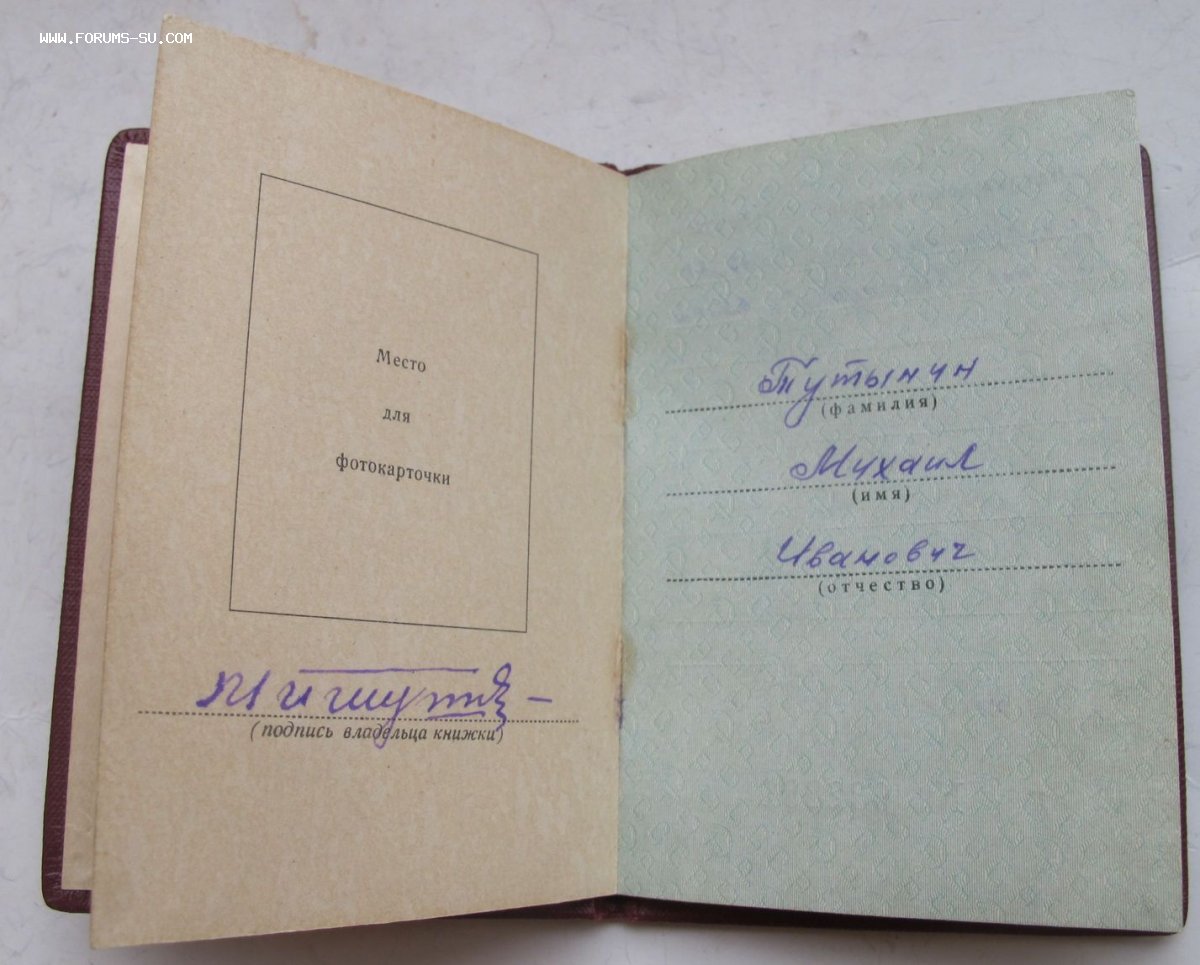 WWW.FORUMS-SU.COM
Место
для
фотокарточки
(подпись владельца книжки)
Тутынин
(фамилия)
Михаил
(имя)
Иванович
(отчество)